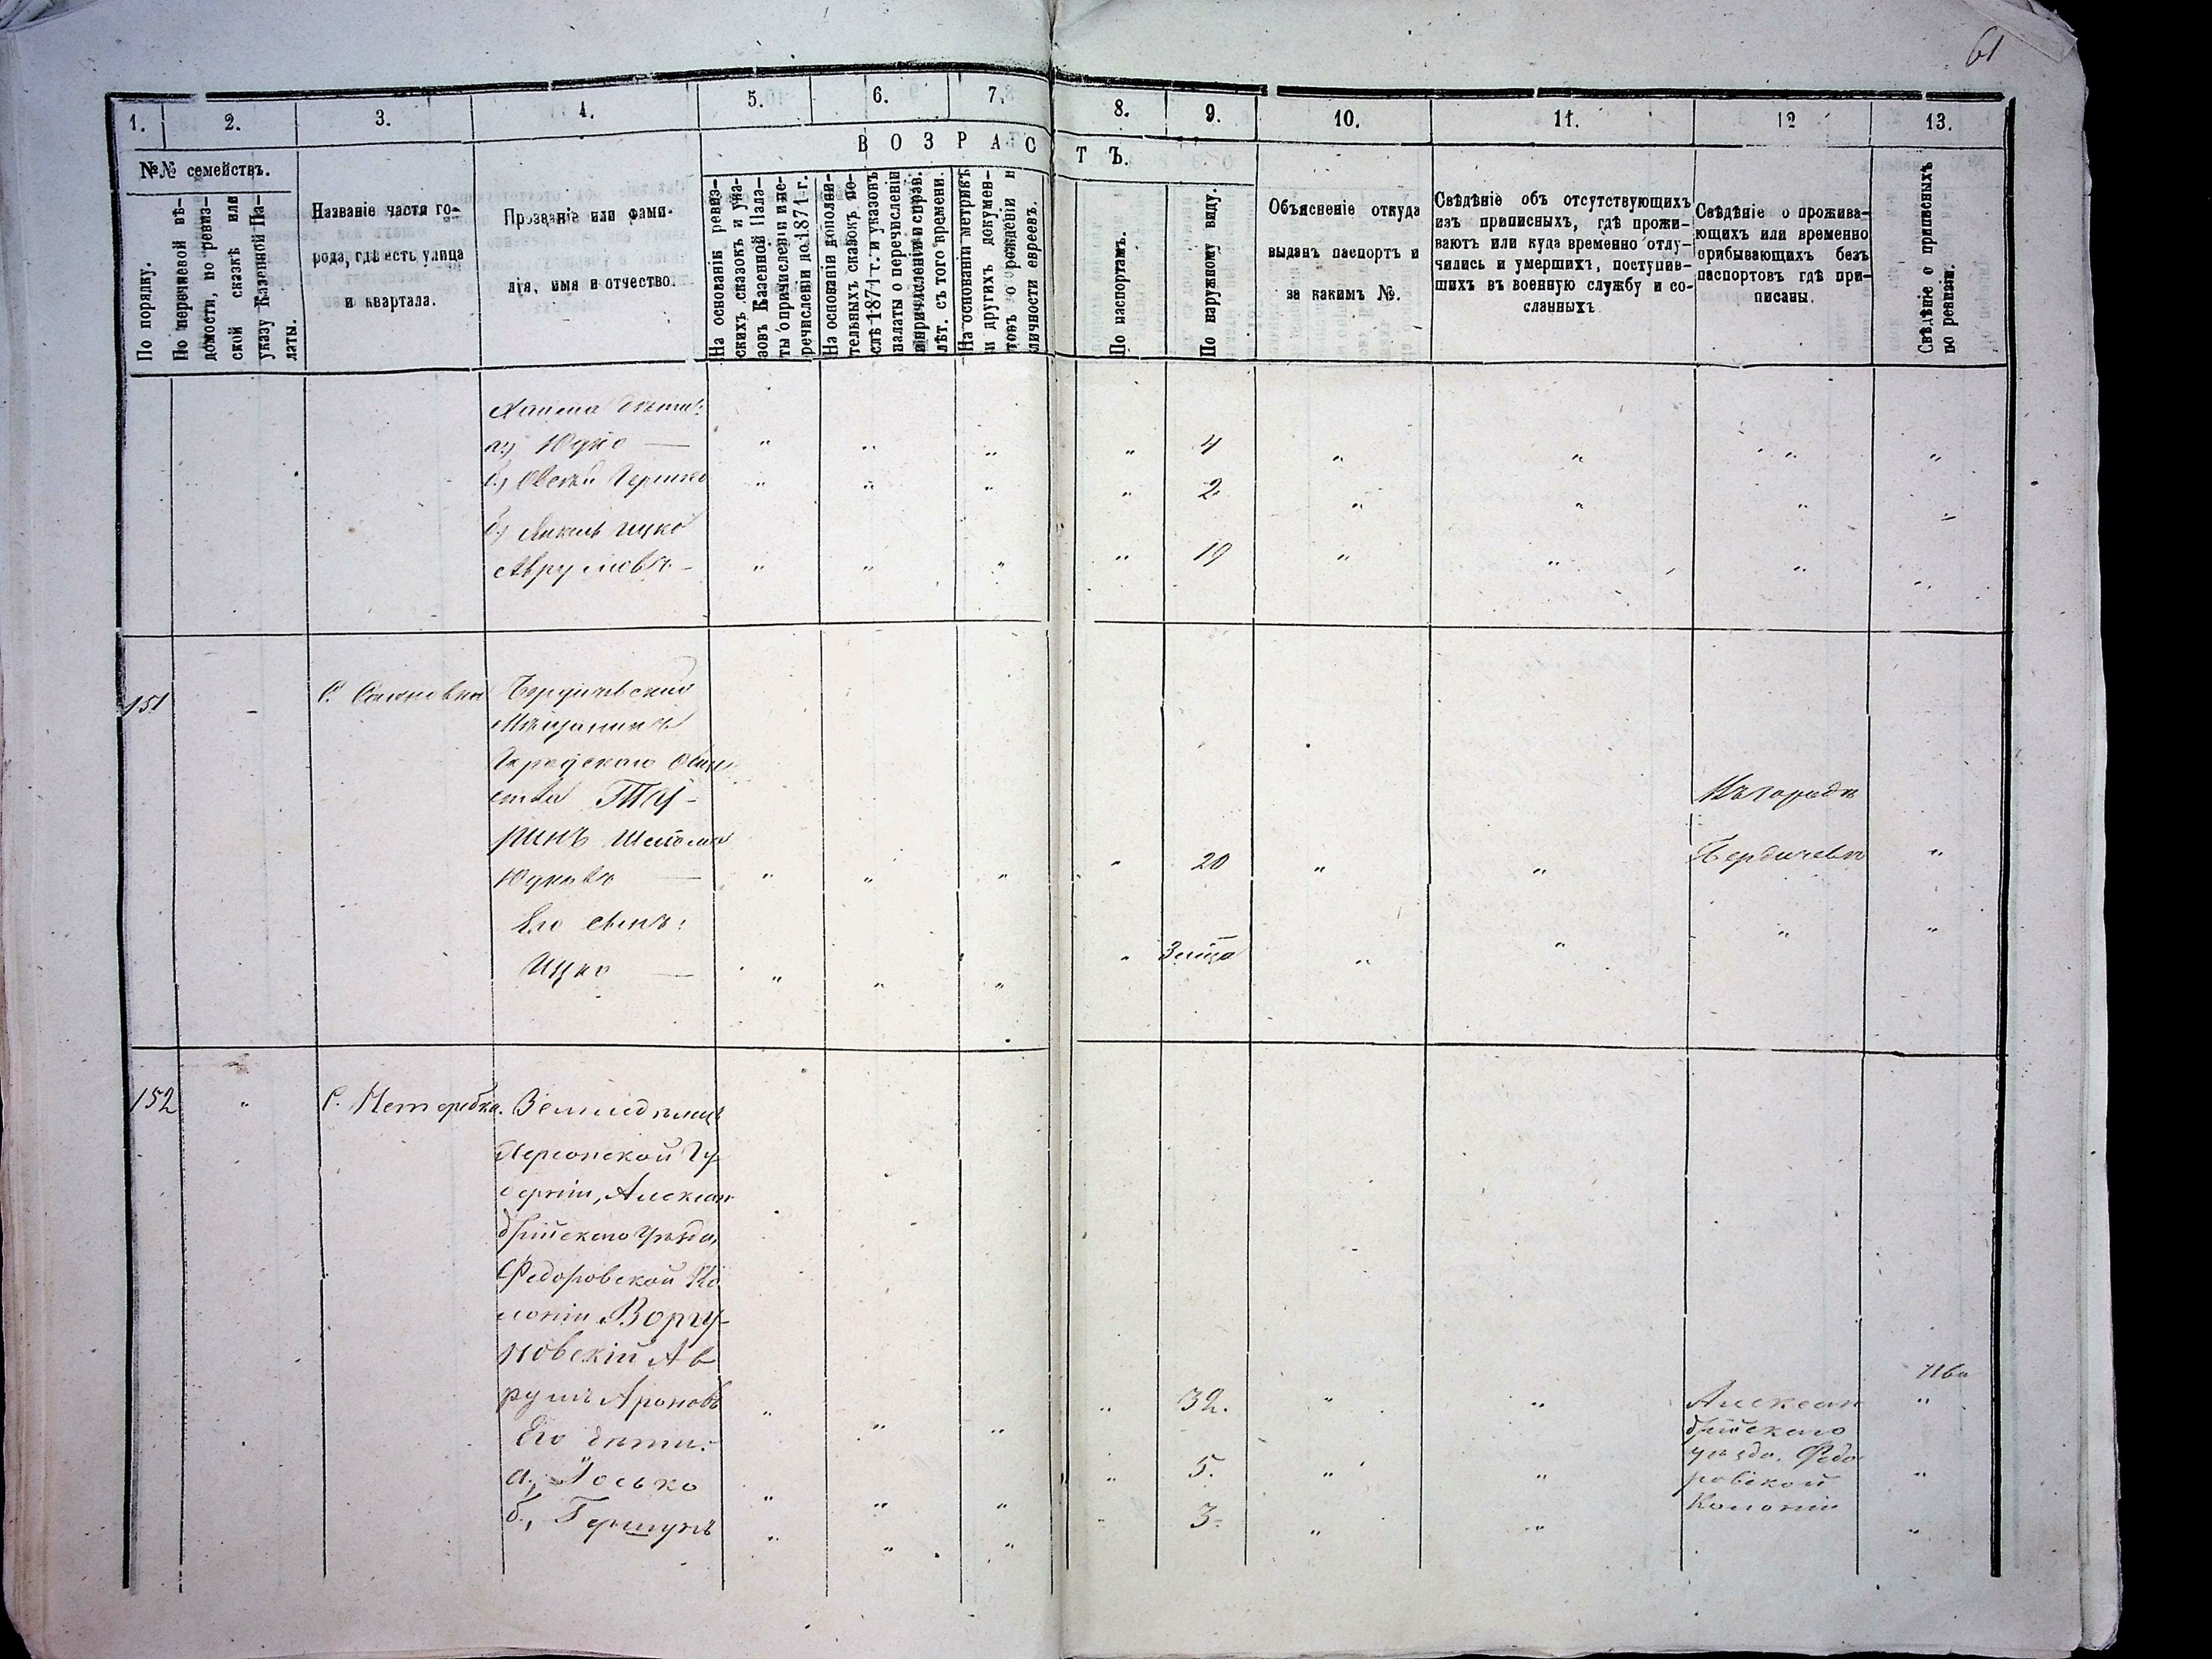 61
1. 2. 3. 4. 5. 6. 7. 8. 9. 10. 11. 12 13.
В О З Р А С Т Ъ.
№№ семействъ.
По порядку.
По перечневой вѣ-
домости, по ревиз-
ской сказкѣ или
указу Казенной Па-
латы.
Названіе части го-
рода, гдѣ есть улица
и квартала.
Прозваніе или фами-
лія, имя и отчество.
На основаніи ревиз-
скихъ сказокъ и ука-
зовъ Казенной Пала-
ты о причисленіи и пе-
речисленіи до 1871 г.
На основаніи дополни-
тельныхъ сказокъ по-
слѣ 1871 г. и указовъ
палаты о перечисленіи
и причисленіи и справ.
лѣт. съ того времени.
На основаніи метрикъ
и другихъ докумен-
товъ о рожденіи и
личности евреевъ.
По паспортамъ.
По наружному виду.
Объясненіе откуда
выданъ паспортъ и
за какимъ №.
Свѣдѣніе объ отсутствующихъ
изъ приписныхъ, гдѣ прожи-
ваютъ или куда временно отлу-
чились и умершихъ, поступив-
шихъ въ военную службу и со-
сланныхъ
Свѣдѣніе о прожива-
ющихъ или временно
прибывающихъ безъ
паспортовъ гдѣ при-
писаны.
Свѣдѣніе о приписныхъ
по ревизіи.
Хаима дѣти:
а.) Юдко — " " " " 4 " " " "
б.) Овсѣй Гершко " " " " 2 " " " "
в.) Янкель Ицко
Аврумовъ - " " " " 19 " " " "
151 - С. Бердичевскій
Мѣщанинъ
Городского Общe
ства Тay-
ринъ Шлёма
Юдковъ — " " " " 20 " "
Въ городѣ
Бердичевѣ "
Его сынъ:
Ицко — " " " " 3 мѣс " " " "
152 " С. Нетеребка. Земледѣлецъ
Херсонской Гу
берніи, Алексан
дрійскаго Уѣзда,
Федоровской Ко
лоніи Воргу-
новскій Ав
румъ Ароновъ " " " " 32. " "
Алексан "
дрійскаго
уѣзда, Федо
ровской
Колоніи
Его дѣти:
а., Йосько " " " " 5. " " "
б., Гершунъ " " " " 3. " " "